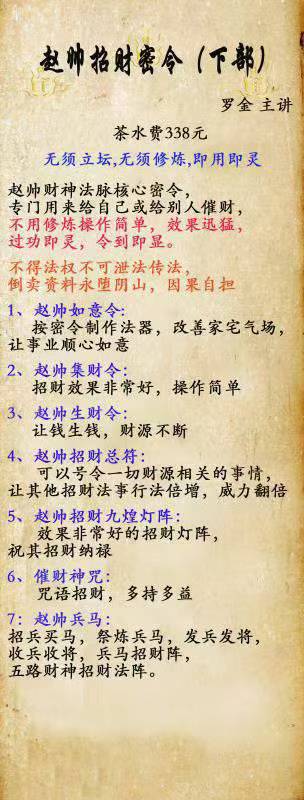 赵帅招财密令（下部）
罗金 主讲
茶水费338元
无须立坛,无须修炼,即用即灵
赵帅财神法脉核心密令，
专门用来给自己或给别人催财，
不用修炼操作简单，效果迅猛，
过功即灵，令到即显。
不得法权不可泄法传法，
倒卖资料永堕阴山，因果自担
1、赵帅如意令:
按密令制作法器，改善家宅气场，
让事业顺心如意
2、赵帅集财令:
招财效果非常好，操作简单
3、赵帅生财令:
让钱生钱，财源不断
4、赵帅招财总符:
可以号令一切财源相关的事情，
让其他招财法事行法倍增，威力翻倍
5、赵帅招财九煌灯阵:
效果非常好的招财灯阵，
祝其招财纳禄
6、催财神咒:
咒语招财，多持多益
7:赵帅兵马:
招兵买马，祭炼兵马，发兵发将，
收兵收将，兵马招财阵，
五路财神招财法阵。